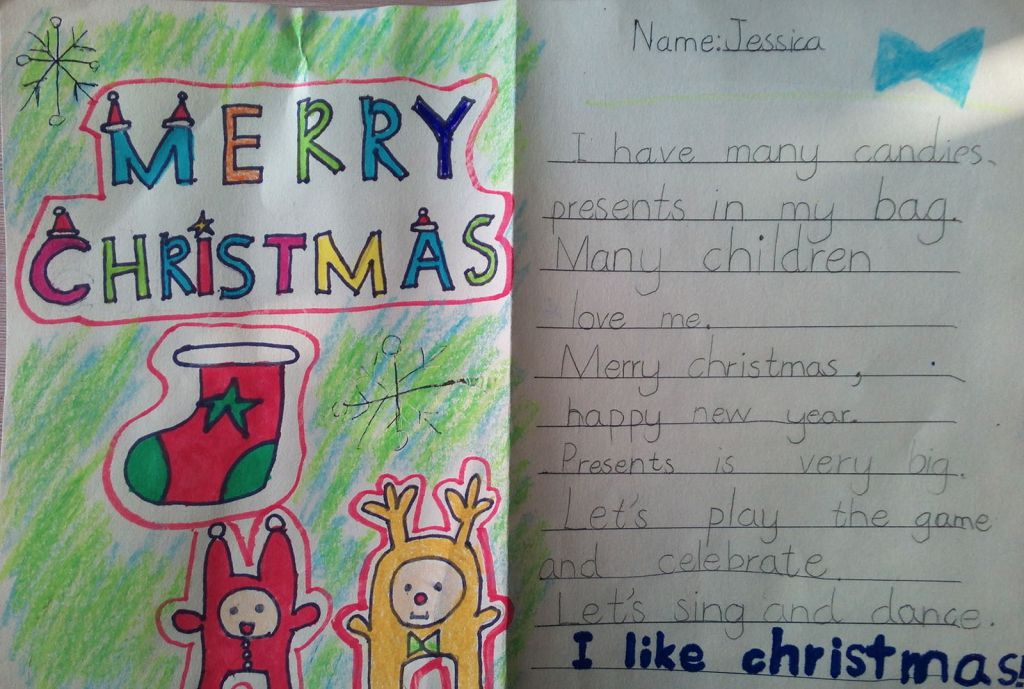 MERRY
CHRISTMAS
Name:Jessica
I have many candies、
presents in my bag.
Many children
love me.
Merry christmas,
happy new year.
Presents is very big.
Let's play the game
and celebrate
Let's sing and dance.
I like christmas!